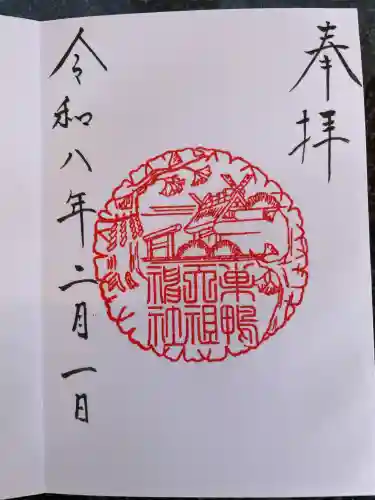 奉拝
東鴨
天祖
神社
令和八年二月一日